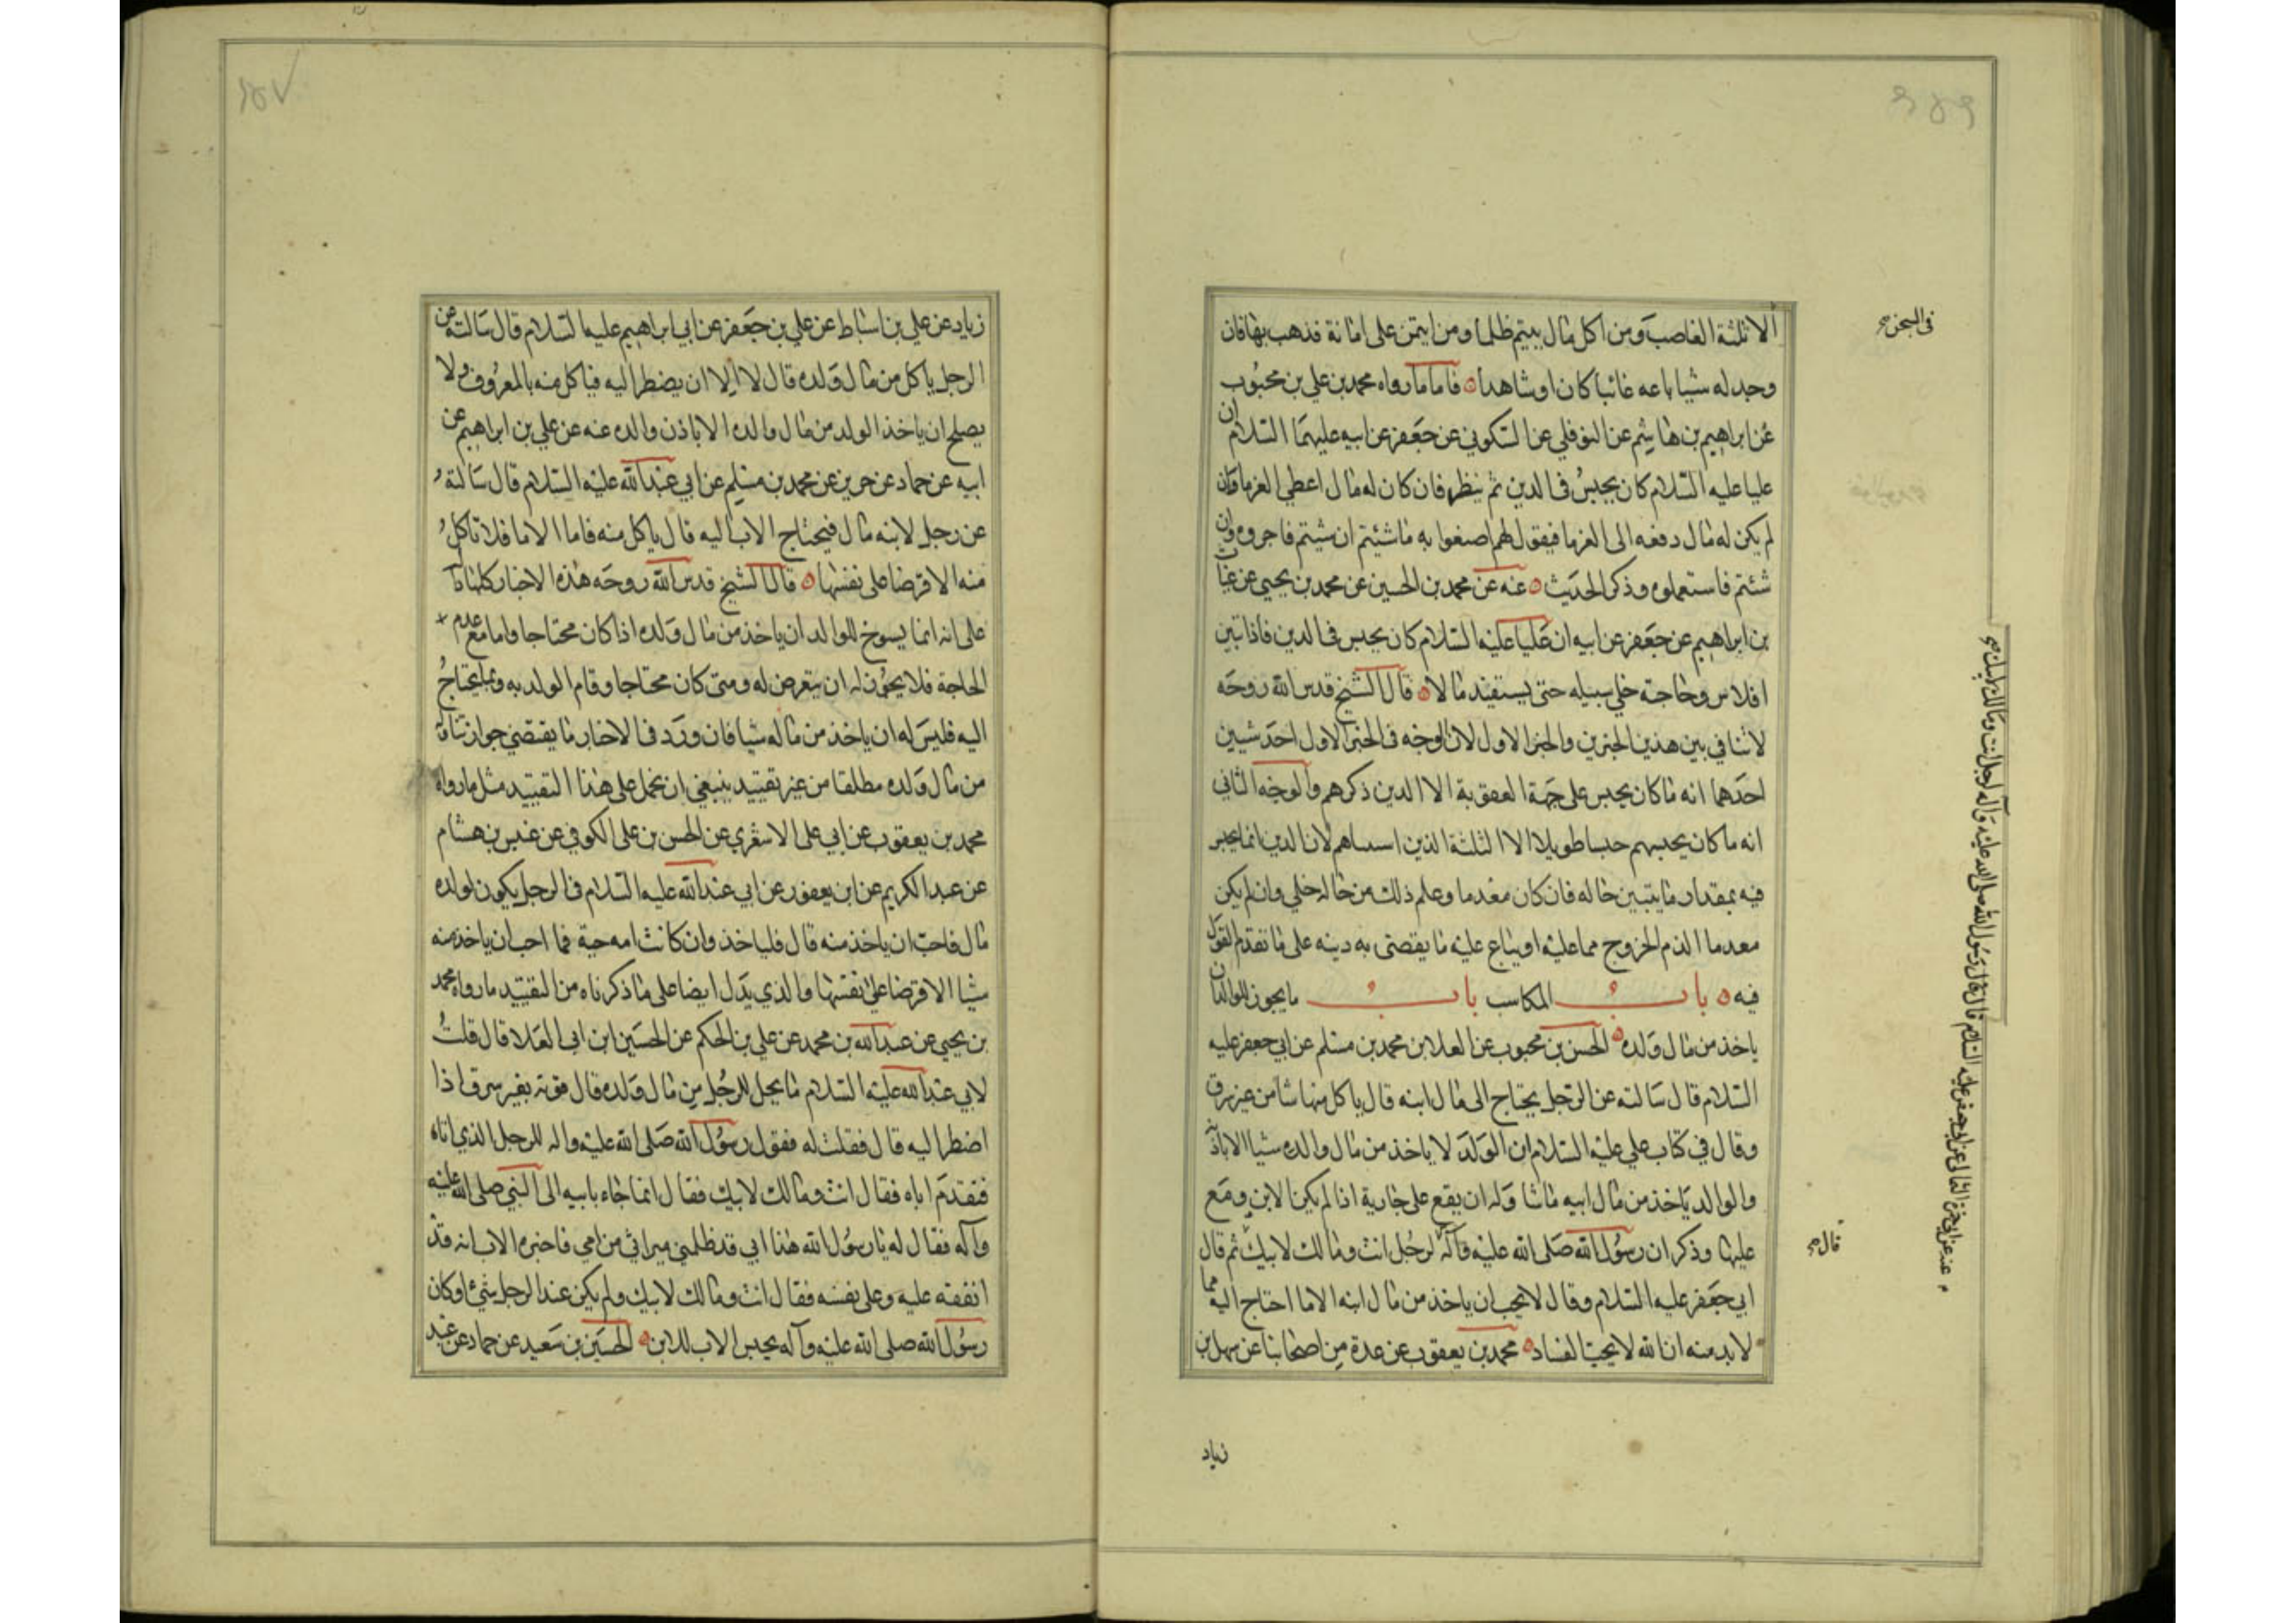 في السجن صح
الا ثلثة الغاصب ومن اكل مال يتيم ظلما ومن ائتمن على امانة فذهب بها فان
وجد له شيئا باعه غائبا كان او شاهدا ۞ فاما ما رواه محمد بن علي بن محبوب
عن ابراهيم بن هاشم عن النوفلي عن السكوني عن جعفر عن ابيه عليهما السلام ان
عليا عليه السلام كان يحبس في الدين ثم ينظر فان كان له مال اعطى الغرما وان
لم يكن له مال دفعه الى الغرما فيقول لهم اصنعوا به ما شئتم ان شيتم فاجروه وان
شئتم فاستعملوه وذكر الحديث ۞ عنه عن محمد بن الحسين عن محمد بن يحيى عن غياث
بن ابراهيم عن جعفر عن ابيه ان عليا عليه السلام كان يحبس في الدين فاذا تبين
افلاس وحاجة خلى سبيله حتى يستفيد مالا ۞ قال الشيخ قدس الله روحه
لا تنافي بين هذين الخبرين والخبر الاول لان الوجه في الخبر الاول احد شيين
احدهما انه ما كان يحبس على جهة العقوبة الا الذين ذكرهم والوجه الثاني
انه ما كان يحبسهم حبسا طويلا الا الثلثة الذين اسساهم لان الدين انما يحبس
فيه بمقدار ما يتبين حاله فان كان معدما وعلم ذلك من حاله خلي وان لم يكن
معدما الذم الخروج مما عليه او يباع عليه ما يقضى به دينه على ما تقدم القول
فيه ۞ باب المكاسب باب ما يجوز للوالد ان
ياخذ من مال ولده ۞ الحسن بن محبوب عن العلا بن محمد بن مسلم عن ابي جعفر عليه
السلام قال سالته عن الرجل يحتاج الى مال ابنه قال ياكل منها شا من غير سرف
وقال في كتاب علي عليه السلام ان الولد لا ياخذ من مال والده شيا الا باذنه
والوالد ياخذ من مال ابيه ماشا وله ان يقع على جارية اذا لم يكن الابن وقع
عليها وذكر ان رسول الله صلى الله عليه وآله لرجل انت ومالك لابيك ثم قال
ابي جعفر عليه السلام وقال لا نحب ان ياخذ من مال ابنه الا ما احتاج اليه مما
لا بد منه ان الله لا يحب الفساد ۞ محمد بن يعقوب عن عدة من اصحابنا عن سهل بن
زياد
قال صح
عنه عن ابي حمزة الثمالي عن ابي جعفر عليه السلام قال قال رسول الله صلى الله عليه وآله لرجل انت ومالك لابيك صح
زياد عن علي بن اسباط عن علي بن جعفر عن ابي ابراهيم عليه السلام قال سالته عن
الرجل ياكل من مال ولده قال لا الا ان يضطر اليه فياكل منه بالمعروف ولا
يصلح ان ياخذ الولد من مال والده الا باذن والده عنه عن علي بن ابراهيم عن
ابيه عن حماد عن حريز عن محمد بن مسلم عن ابي عبد الله عليه السلام قال سالته
عن رجل لابنه مال فيحتاج الاب اليه قال ياكل منه فاما الام فلا تاكل
منه الا قرضا على نفسها ۞ قال الشيخ قدس الله روحه هذه الاخبار كلها دالة
على انه انما يسوغ للوالد ان ياخذ من مال ولده اذا كان محتاجا واما مع عدم
الحاجة فلا يجوز له ان يتعرض له ومتى كان محتاجا وقام الولد به وبما يحتاج
اليه فليس له ان ياخذ من ماله شيا فان ورد في الاخبار ما يقتضي جواز تناوله
من مال ولده مطلقا من غير تقييد ينبغي ان نحمل على هذا التقييد مثل ما رواه
محمد بن يعقوب عن ابي على الاشعري عن الحسن بن على الكوفي عن عبيس بن هشام
عن عبد الكريم عن ابن يعفور عن ابي عبد الله عليه السلام في الرجل يكون لولده
مال فاحب ان ياخذ منه قال فلياخذ وان كانت امه حية فما احب ان ياخذ منه
شيا الا قرضا على نفسها والذي يدل ايضا على ما ذكرناه من التقييد ما رواه محمد
بن يحيى عن عبد الله بن محمد عن علي بن الحكم عن الحسين ابن ابي العلا قال قلت
لابي عبد الله عليه السلام ما يحل للرجل من مال ولده قال قوته بغير سرف اذا
اضطر اليه قال فقلت له فقول رسول الله صلى الله عليه واله للرجل الذي اتاه
فقدم اباه فقال انت ومالك لابيك فقال انما جاء بابيه الى النبي صلى الله عليه
وآله فقال له يا رسول الله هذا ابي قد ظلمني ميراثي من امي فاخبره الاب انه قد
انفقه عليه وعلى نفسه فقال انت ومالك لابيك ولم يكن عند الرجل شئ اوكان
رسول الله صلى الله عليه وآله يحبس الاب للابن ۞ الحسين بن سعيد عن حماد عن عبد